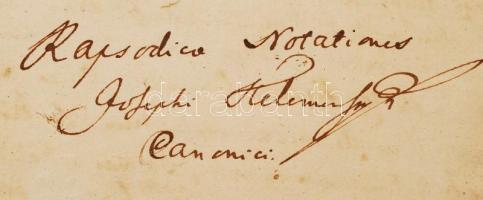 Rapsodicæ Notationes
Josephi
Canonici.
darabanth